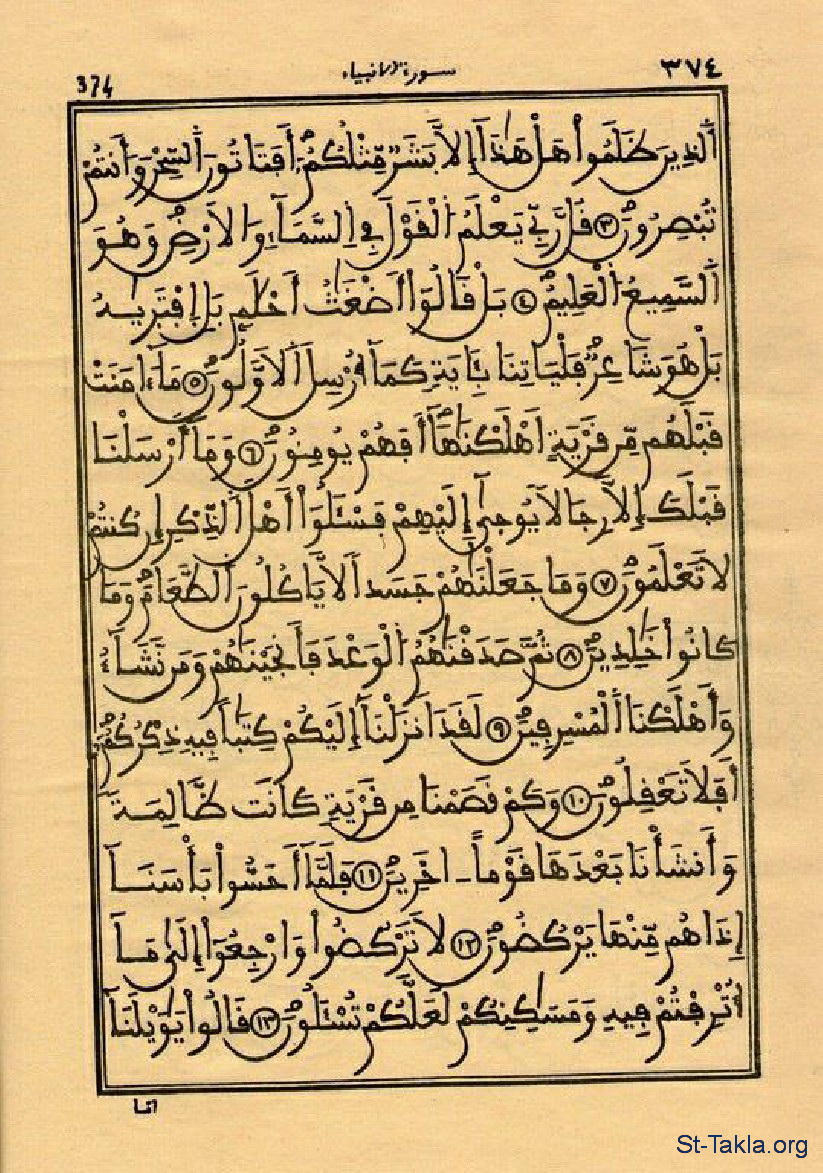 ٣٧٤ سورة الانبياء 374
اَلذِينَ ظَلَمُواْ هَلْ هَٰذَآ إِلاَّ بَشَرٌ مِّثْلُكُمُۥٓ أَفَتَاتُونَ اَلسِّحْرَ وَأَنتُمْ
تُبْصِرُونَ ٣ قُل رَّبِّي يَعْلَمُ اُلْقَوْلَ فِي اِلسَّمَآءِ وَالاَرْضِ وَهُوَ
اَلسَّمِيعُ اُلْعَلِيمُ ٤ بَلْ قَالُوٓاْ أَضْغَٰثُ أَحْلَٰمِۢ بَلِ إِفْتَرَيٰهُ
بَلْ هُوَ شَاعِرٌ فَلْيَاتِنَا بِـَٔايَةٍ كَمَآ أُرْسِلَ اَلاَوَّلُونَ ٥ مَآ ءَامَنَتْ
قَبْلَهُم مِّن قَرْيَةٍ اَهْلَكْنَٰهَآ أَفَهُمْ يُومِنُونَ ٦ وَمَآ أَرْسَلْنَا
قَبْلَكَ إِلاَّ رِجَالاً يُوحَىٰٓ إِلَيْهِمْ فَسْـَٔلُوٓاْ أَهْلَ اَلذِّكْرِ إِن كُنتُمْ
لاَ تَعْلَمُونَ ٧ وَمَا جَعَلْنَٰهُمْ جَسَداً لاَّ يَاكُلُونَ اَلطَّعَامَ وَمَا
كَانُواْ خَٰلِدِينَ ٨ ثُمَّ صَدَقْنَٰهُمُ اُلْوَعْدَ فَأَنجَيْنَٰهُمْ وَمَن نَّشَآءُ
وَأَهْلَكْنَا اَلْمُسْرِفِينَ ٩ لَقَدَ اَنزَلْنَآ إِلَيْكُمْ كِتَٰباً فِيهِ ذِكْرُكُمُۥٓ
أَفَلاَ تَعْقِلُونَ ١٠ وَكَمْ قَصَمْنَا مِن قَرْيَةٍ كَانَت ظَّالِمَةً
وَأَنشَأْنَا بَعْدَهَا قَوْماً ـ اخَرِينَ ١١ فَلَمَّآ أَحَسُّواْ بَأْسَنَآ
إِذَا هُم مِّنْهَا يَرْكُضُونَ ١٢ لاَ تَرْكُضُواْ وَارْجِعُوٓاْ إِلَىٰ مَآ
أُتْرِفْتُمْ فِيهِ وَمَسَٰكِنِكُمْ لَعَلَّكُمْ تُسْـَٔلُونَ ١٣ قَالُواْ يَٰوَيْلَنَآ
انا
St-Takla.org